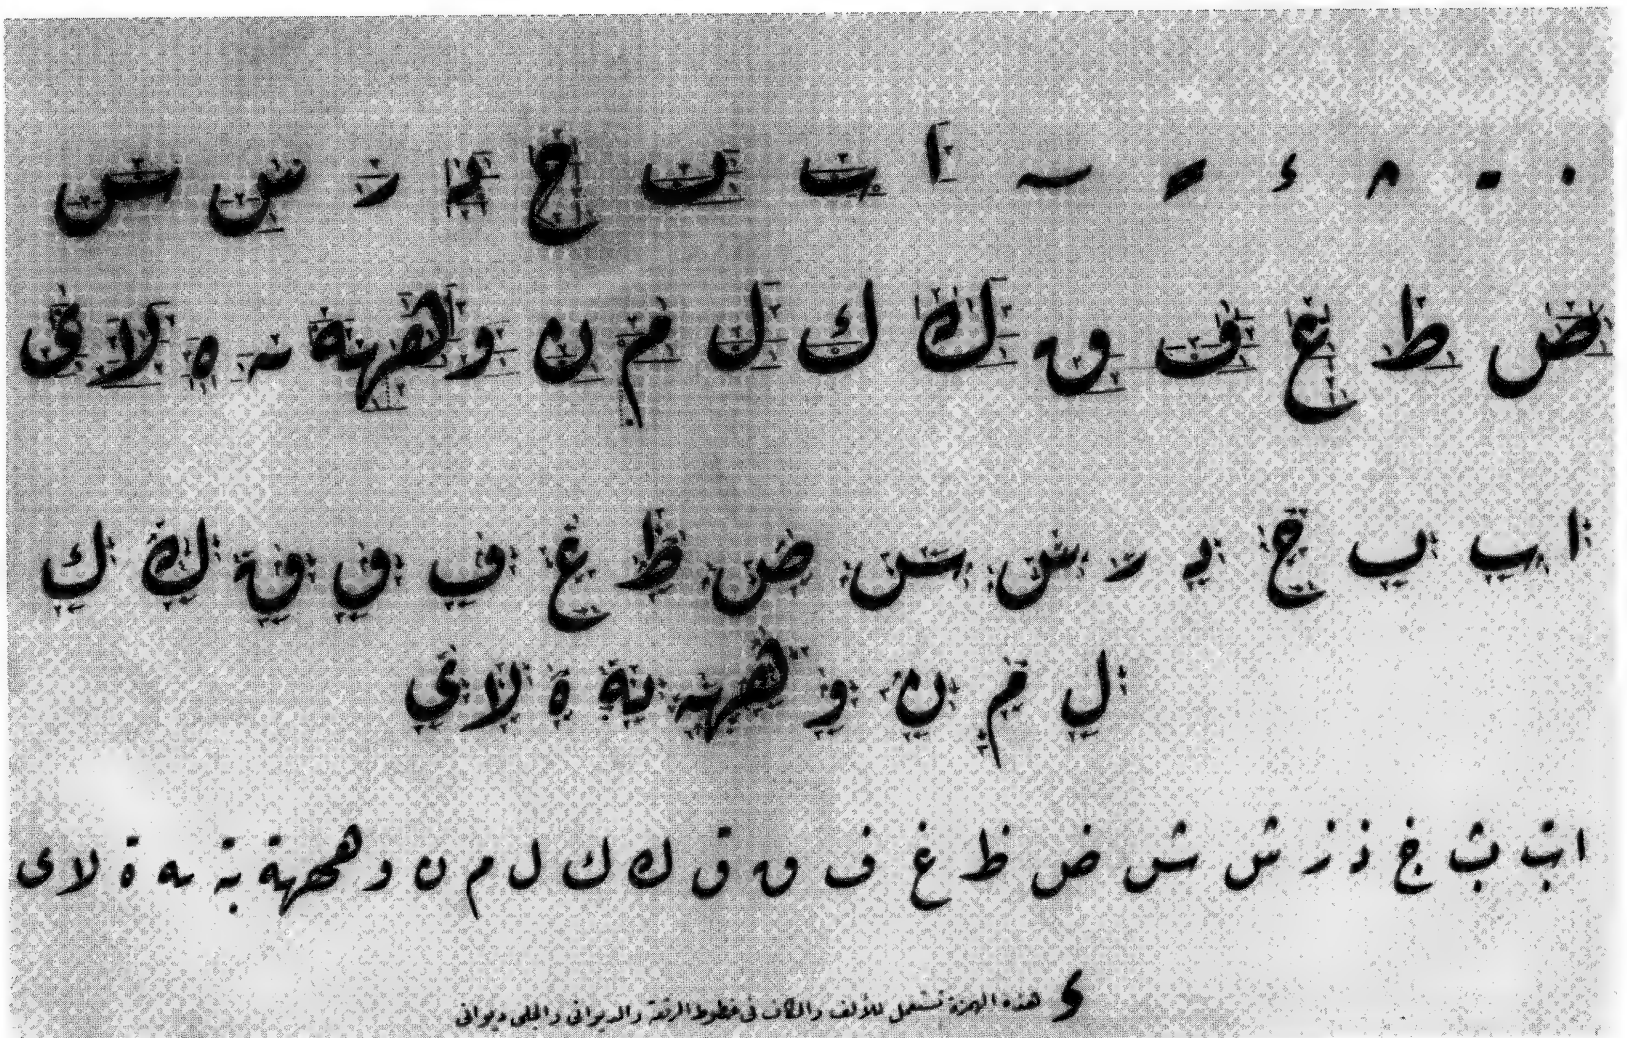 ا ب ن ج د ر س س
ض ط غ ف ق ك ك ل م ن و ههہة ه لا ى
ا ب ب ج د ر س س ض ظ غ ف ق ق ك ك
ل م ن و ههه ة لا ى
ا ت ث خ ذ ز ش ش ض ظ غ ف ق ق ك ك ل م ن و هههة ة لا ى
ء هذه الهمزة تستعمل للألف والكاف فى خطوط الرقعة والديوانى والجلى ديوانى